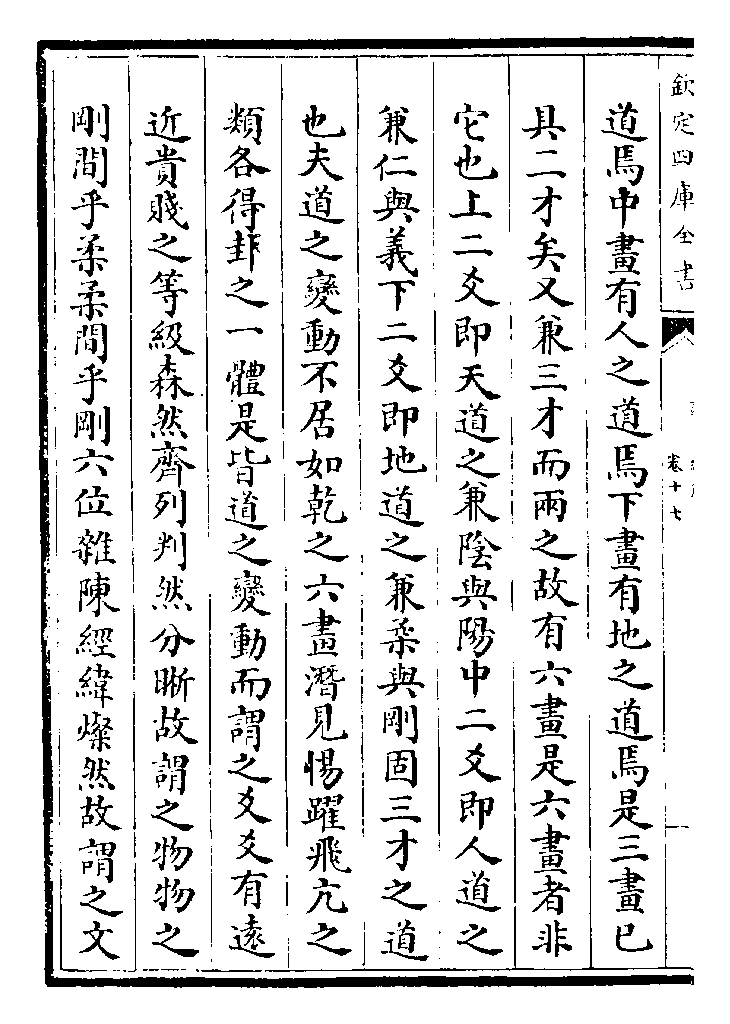 欽定四庫全書
卷十七
道焉中畫有人之道焉下畫有地之道焉是三畫已
具二才矣又兼三才而兩之故有六畫是六畫者非
它也上二爻即天道之兼陰與陽中二爻即人道之
兼仁與義下二爻即地道之兼柔與剛固三才之道
也夫道之變動不居如乾之六畫潛見惕躍飛亢之
類各得卦之一體是皆道之變動而謂之爻爻有遠
近貴賤之等級森然齊列判然分晰故謂之物物之
剛間乎柔柔間乎剛六位雜陳經緯燦然故謂之文